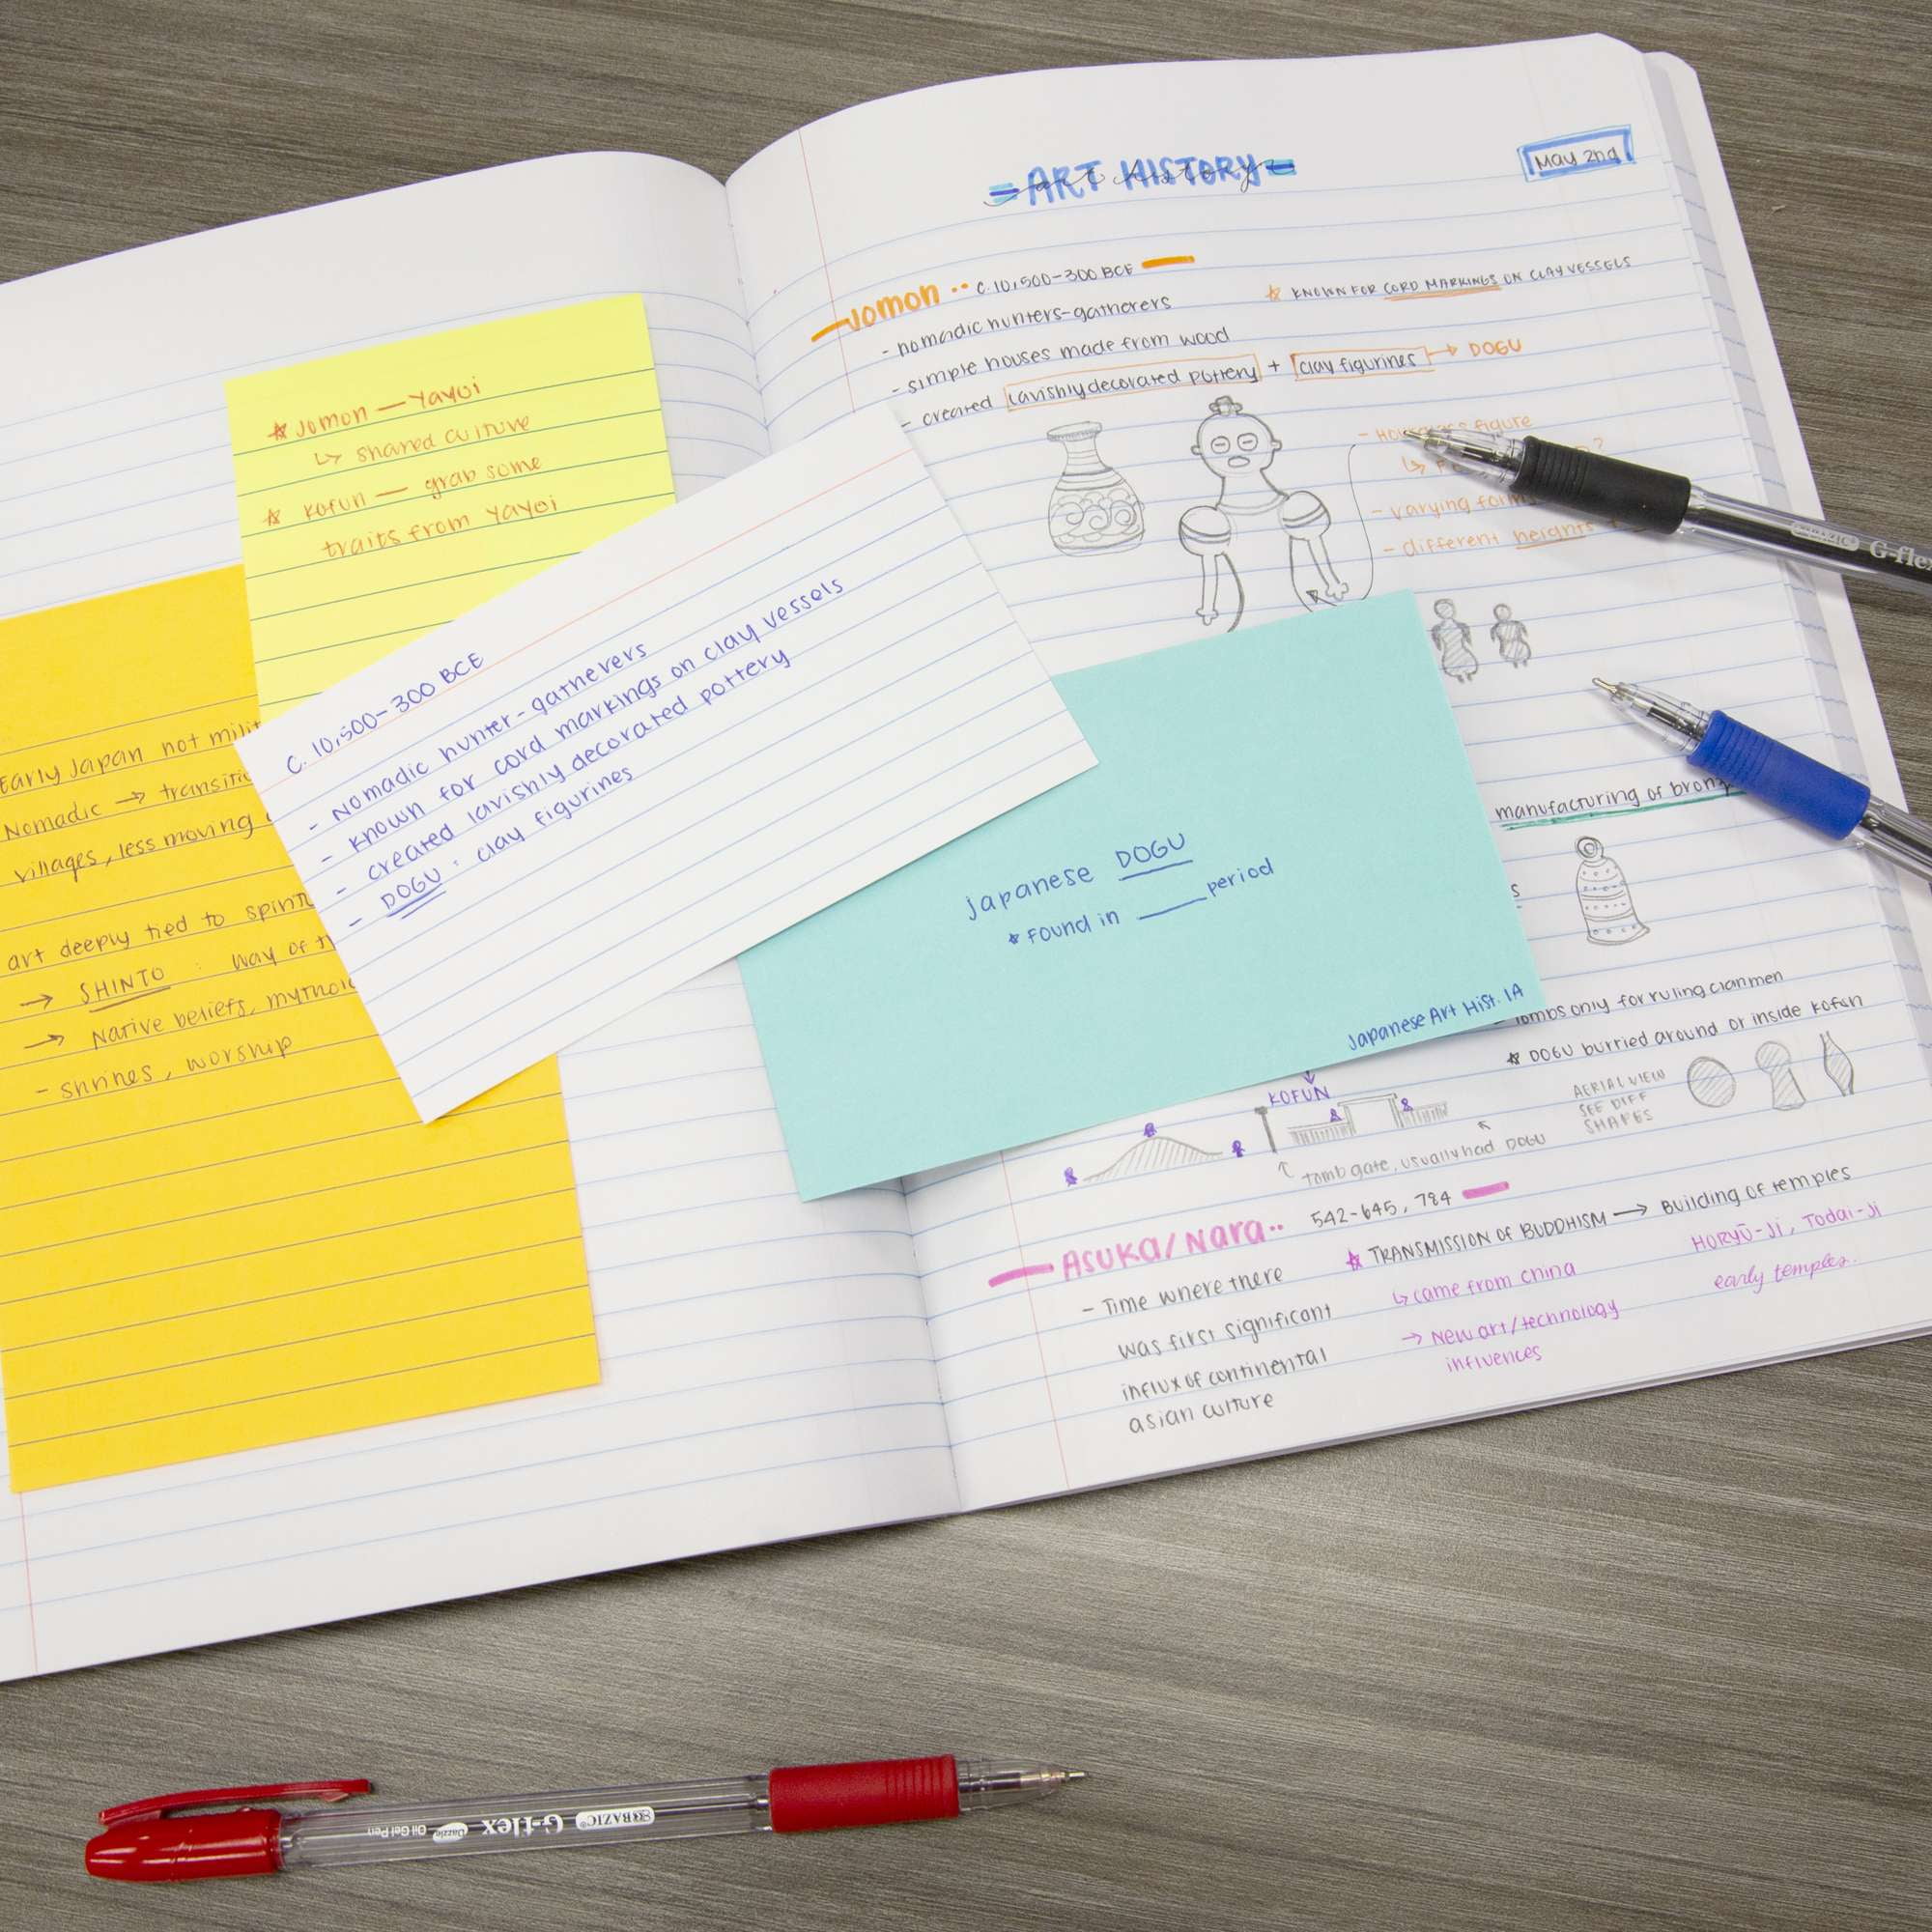 ART HISTORY
art history
May 2nd
Jomon •• c. 10,500-300 BCE
- nomadic hunters-gatherers
☆ KNOWN FOR CORD MARKINGS ON CLAY VESSELS
- simple houses made from wood
- created lavishly decorated pottery + clay figurines → DOGU
figure
- varying
- different heights
manufacturing of
tombs only for ruling clanmen
☆ DOGU burried around or inside Kofun
AERIAL VIEW
SEE DIFF
SHAPES
KOFUN
tomb gate, usually had DOGU
Asuka/Nara •• 542-645, 784
- Time where there
was first significant
influx of continental
asian culture
☆ TRANSMISSION OF BUDDHISM → Building of temples
↳ came from china
→ New art/technology
influences
HORYŪ-Ji, Todai-Ji
early temples.
☆ Jomon — Yayoi
↳ shared culture
☆ Kofun — grab some
traits from Yayoi
Early Japan not
Nomadic →
villages, less moving
art deeply tied to
→ SHINTO : way of
→ Native beliefs,
- shrines, worship
c. 10,500-300 BCE
- Nomadic hunter-gatherers
- known for cord markings on clay vessels
- created lavishly decorated pottery
- DOGU: clay figurines
Japanese DOGU
* Found in ____ period
Japanese Art Hist. 1A
BAZIC G-flex
BAZIC G-flex Dazzle Oil Gel Pen